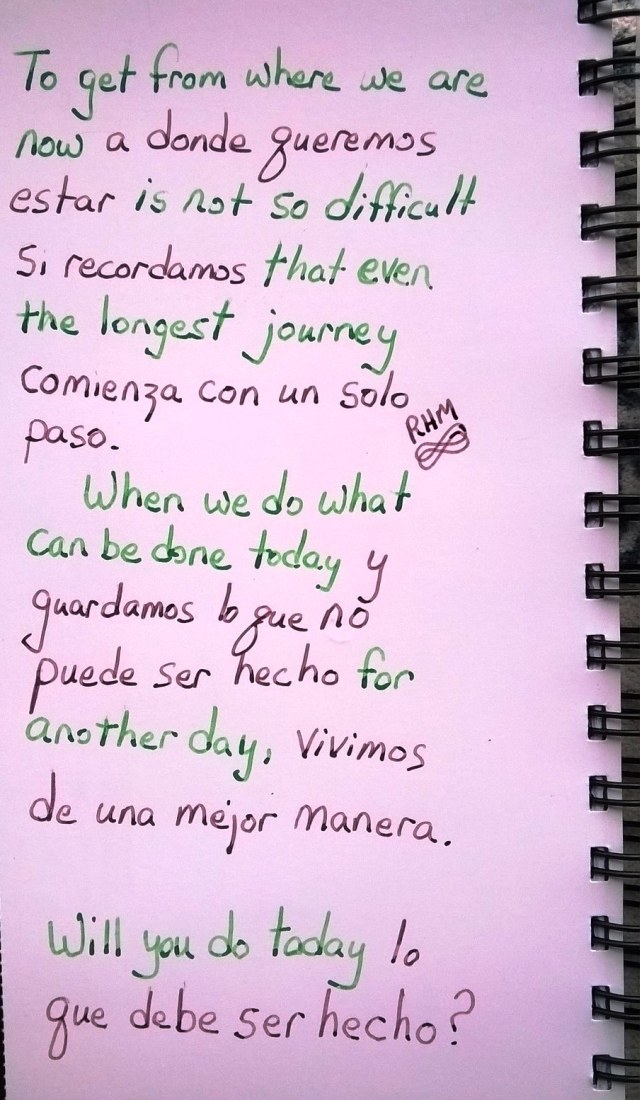 To get from where we are
now a donde queremos
estar is not so difficult
Si recordamos that even
the longest journey
comienza con un solo
paso.
RHM
When we do what
can be done today y
guardamos lo que no
puede ser hecho for
another day, vivimos
de una mejor manera.
Will you do today lo
que debe ser hecho?